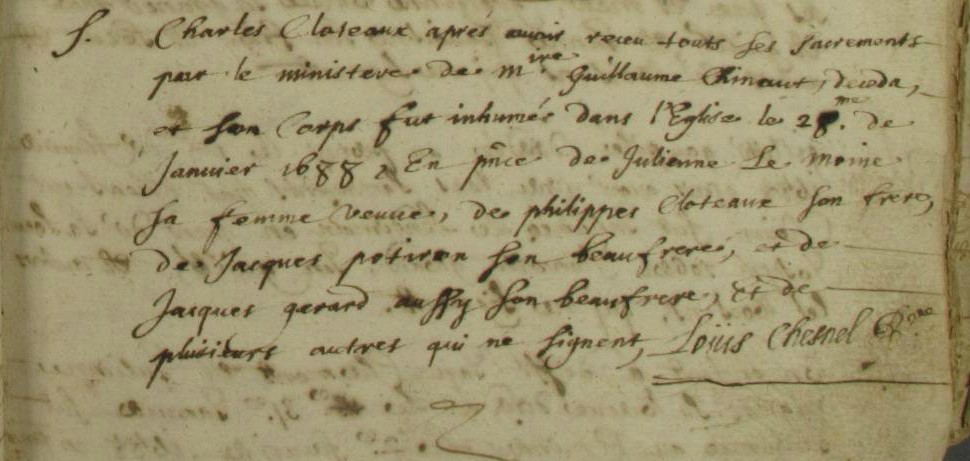 f. Charles Cloteaux aprés avoir receu touts ses sacrements
par le ministere de m^ire Guillaume Rinaut, deceda,
et son Corps fut inhumés dans l'Eglise le 28.^me de
Janvier 1688, En pñce de Julienne Le moine
sa femme veuve, de philippes Cloteaux son frere,
de Jacques potiron son beaufrere, et de
Jacques gerard aussy son beaufrere, et de
plusieurs autres qui ne signent, Loüis Chesnel